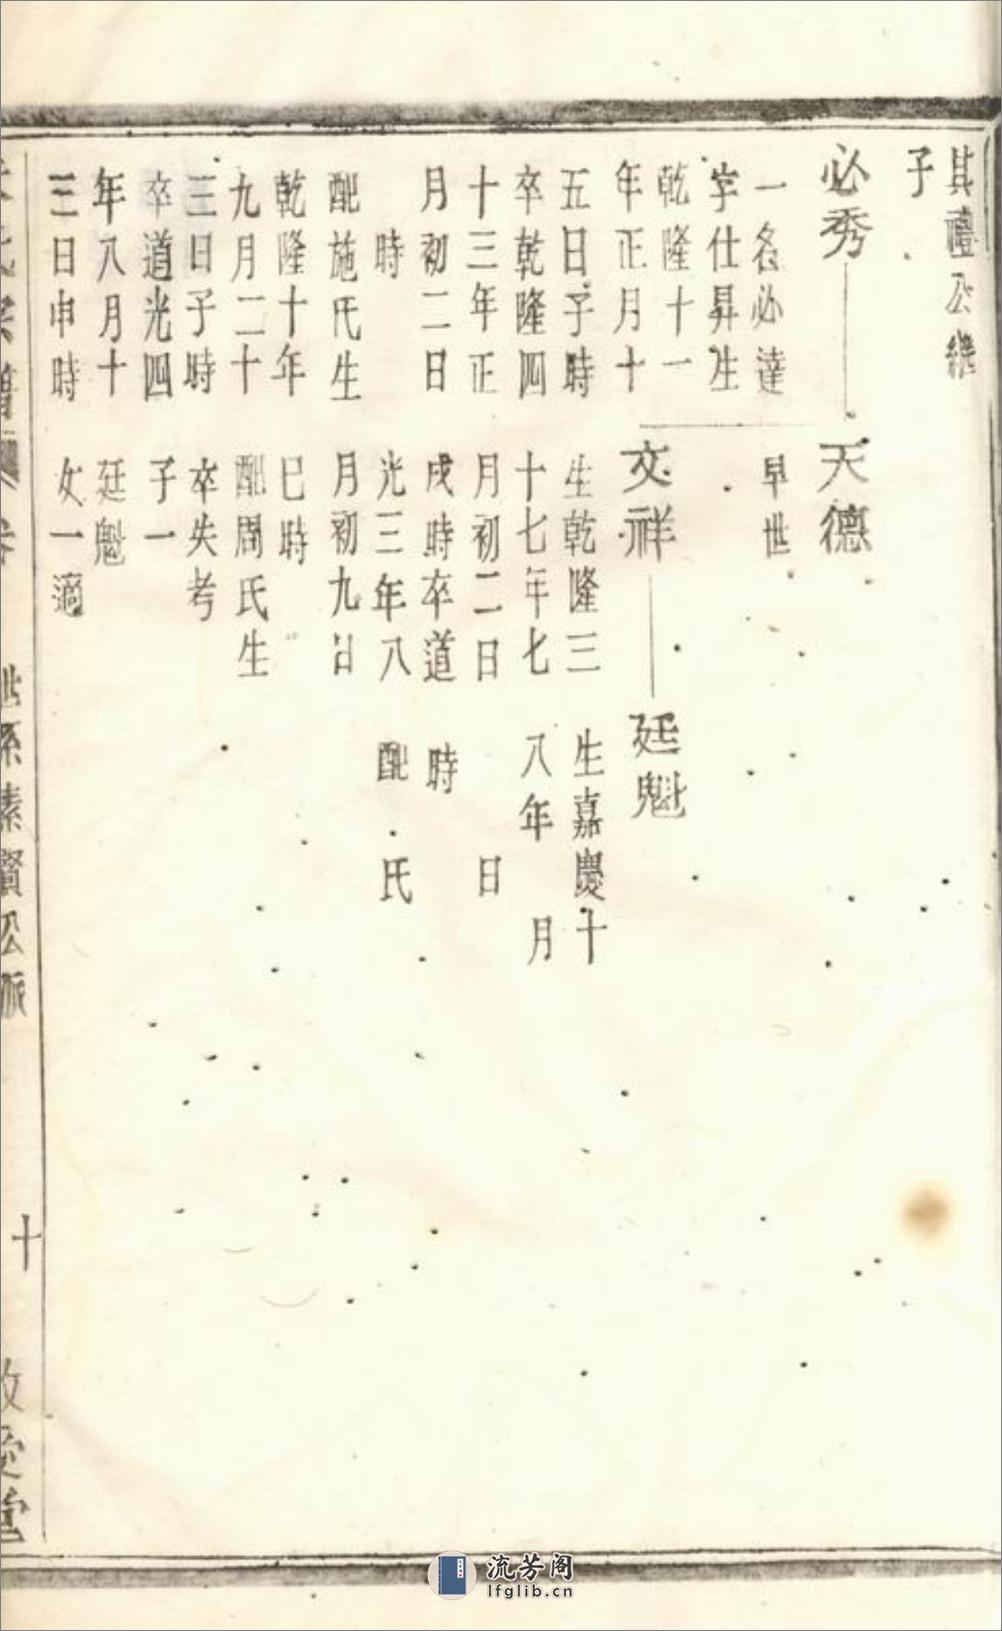 其禮公繼
子
必秀
一名必達
字仕昇生
乾隆十一
年正月十
五日子時
卒乾隆四
十三年正
月初二日
時
配施氏生
乾隆十年
九月二十
三日子時
卒道光四
年八月十
三日申時
天德
早世
文祥
生乾隆三
十七年七
月初二日
戌時卒道
光三年八
月初九日
巳時
配周氏生
卒失考
子一
廷魁
女一適
廷魁
生嘉慶十
八年 月
日
時
配 氏
世系素賢公派
十
敬愛堂
流芳阁
lfglib.cn